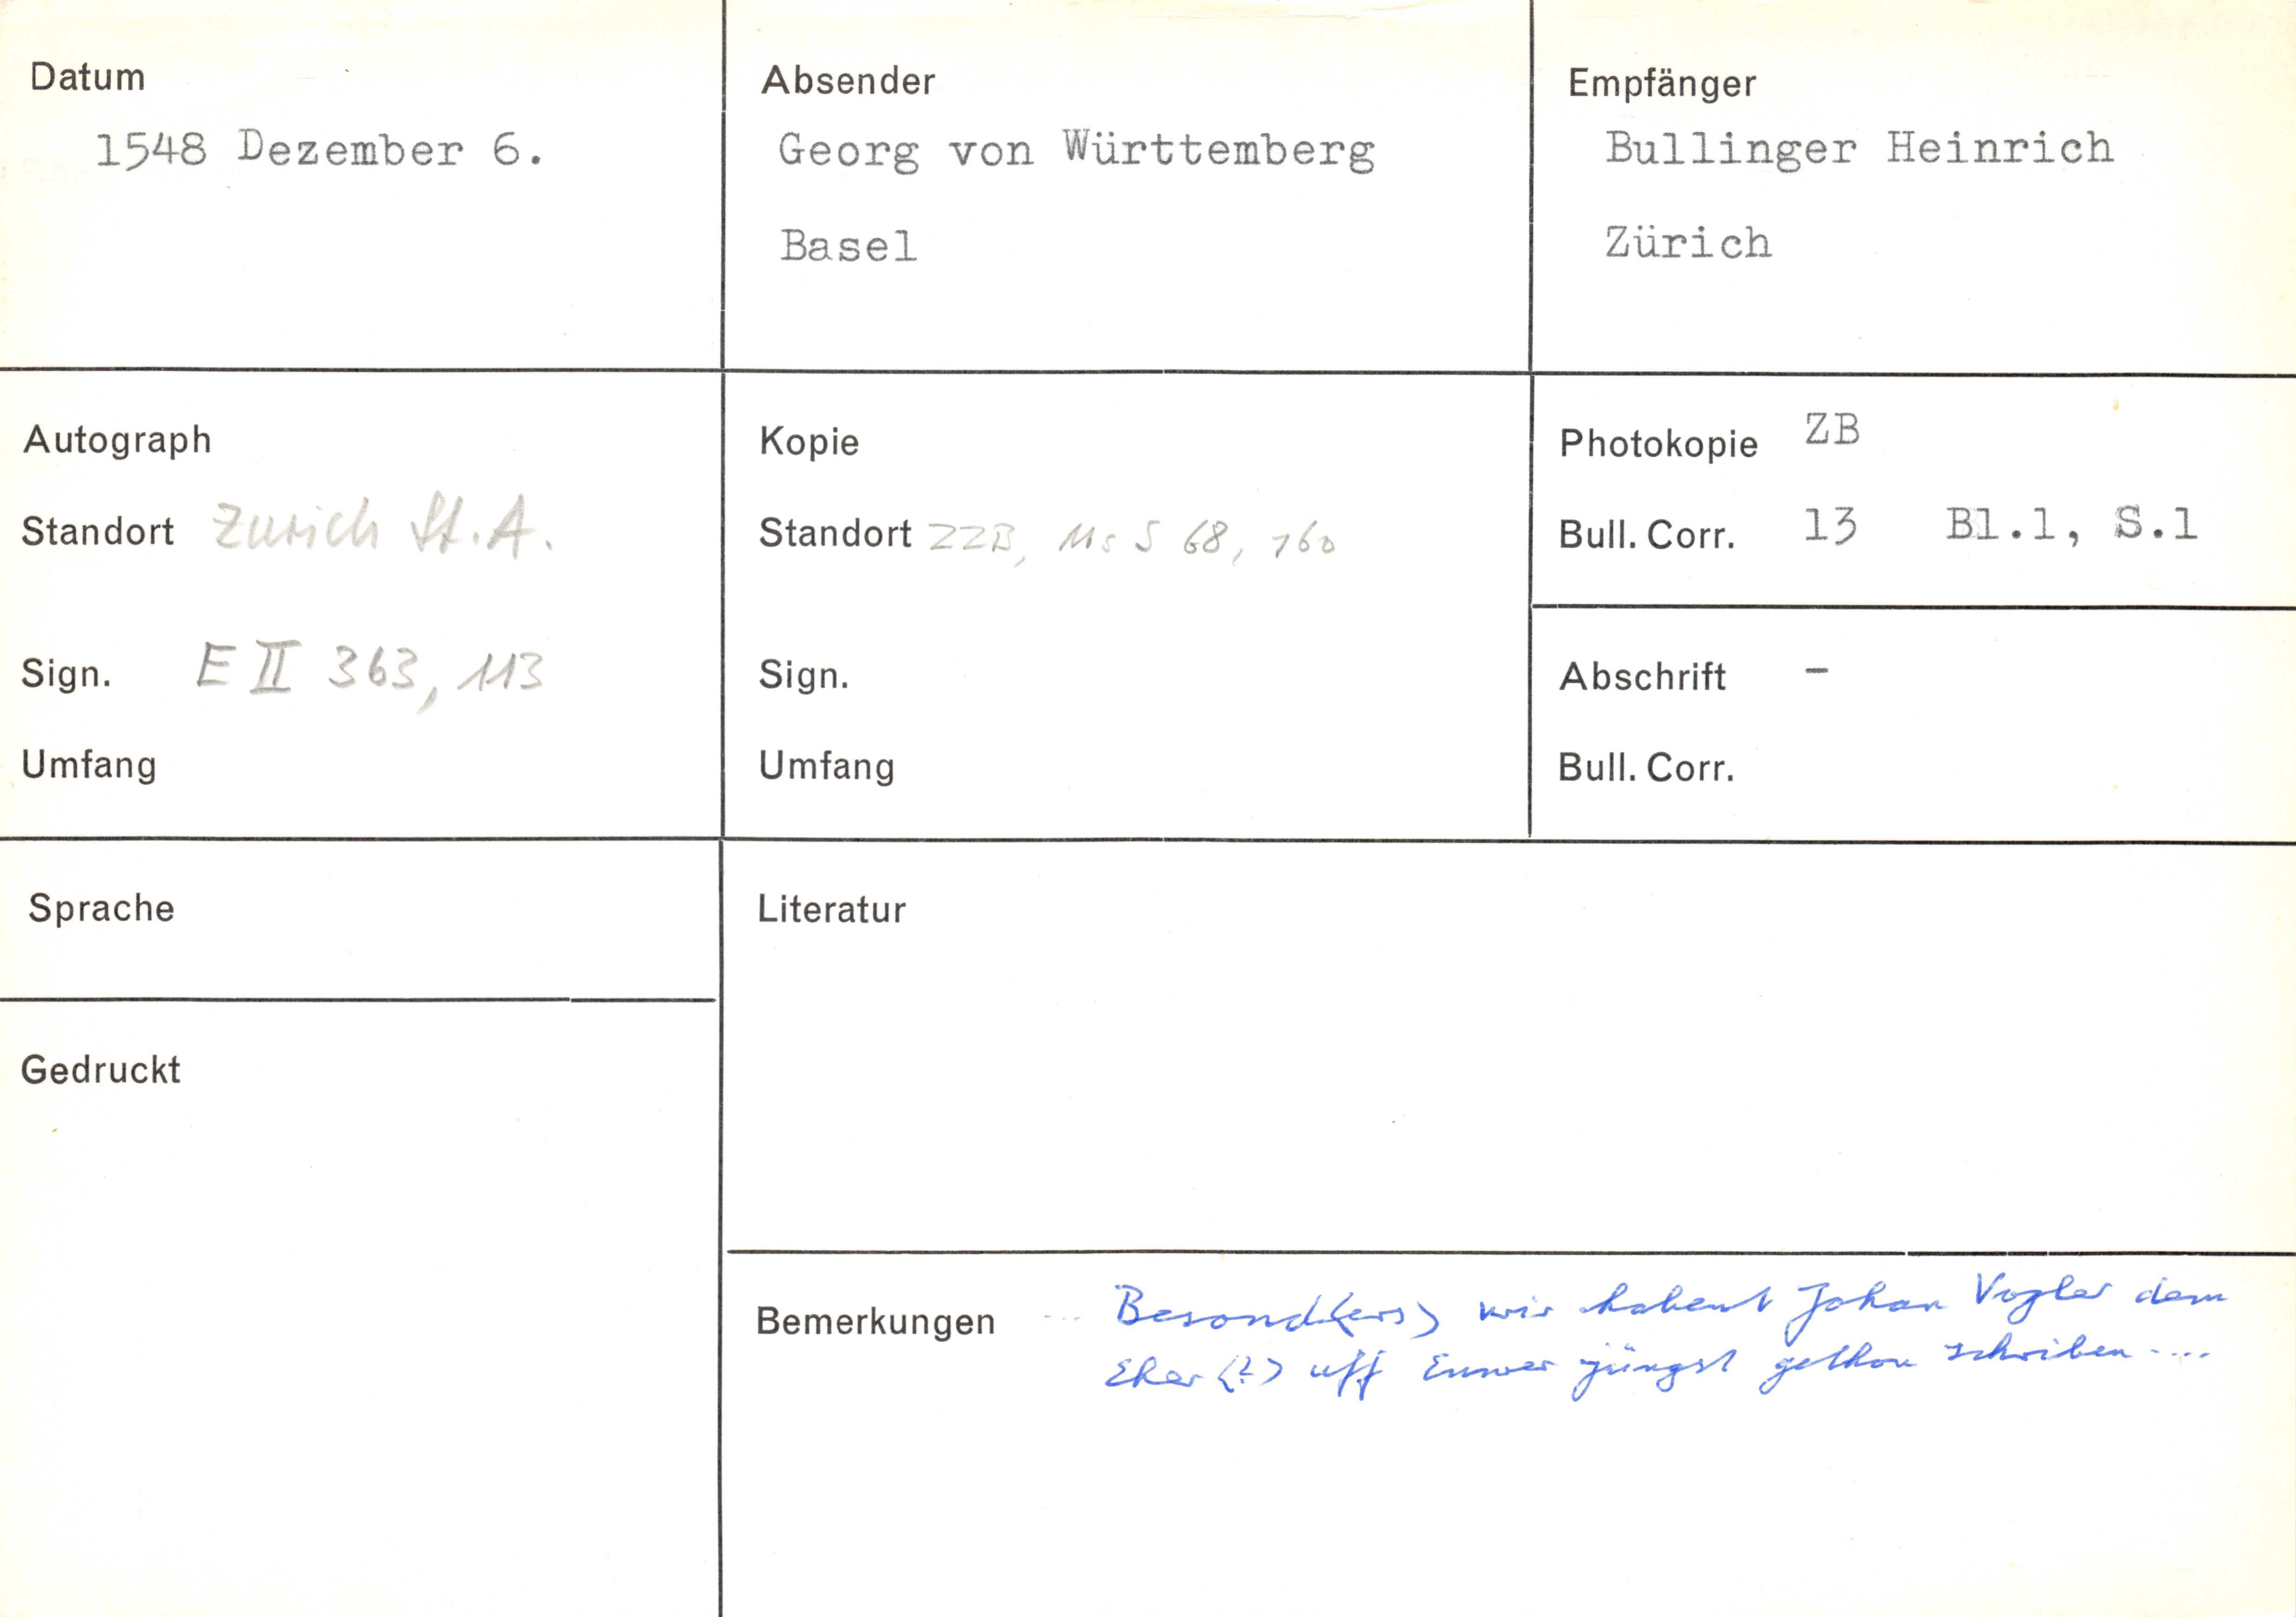 Datum
1548 Dezember 6.
Absender
Georg von Württemberg
Basel
Empfänger
Bullinger Heinrich
Zürich
Autograph
Standort Zürich St.A.
Sign. E II 363, 113
Umfang
Kopie
Standort ZZB, Ms S 68, 160
Sign.
Umfang
Photokopie ZB
Bull. Corr. 13 Bl.1, S.1
Abschrift -
Bull. Corr.
Sprache
Gedruckt
Literatur
Bemerkungen ... Besond<ers> wir habent Johan Vogler dem
Eher <?> uff Euwer jüngst gethon schriben ....